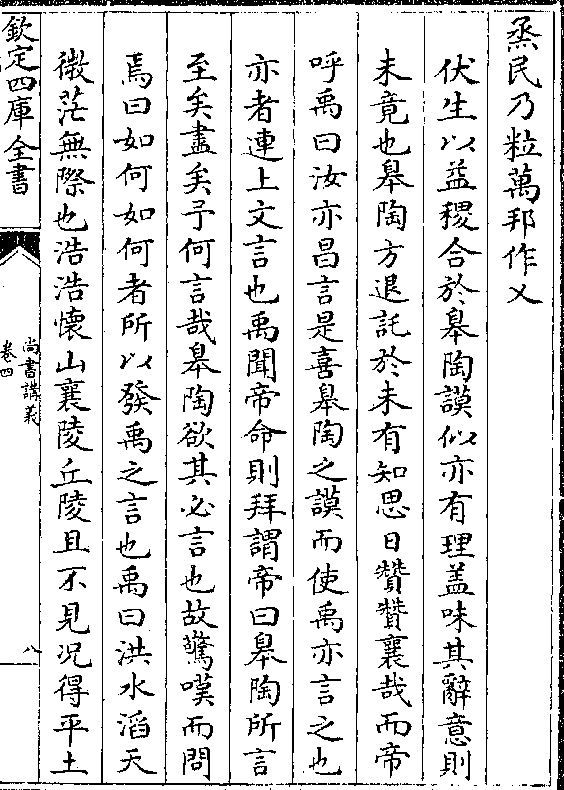 烝民乃粒萬邦作乂
伏生以益稷合於臯陶謨似亦有理盖味其辭意則
未竟也臯陶方退託於未有知思日贊贊襄哉而帝
呼禹曰汝亦昌言是喜臯陶之謨而使禹亦言之也
亦者連上文言也禹聞帝命則拜謂帝曰臯陶所言
至矣盡矣予何言哉臯陶欲其必言也故驚嘆而問
焉曰如何如何者所以發禹之言也禹曰洪水滔天
微茫無際也浩浩懷山襄陵丘陵且不見况得平土
欽定四庫全書
尚書講義
卷四
八